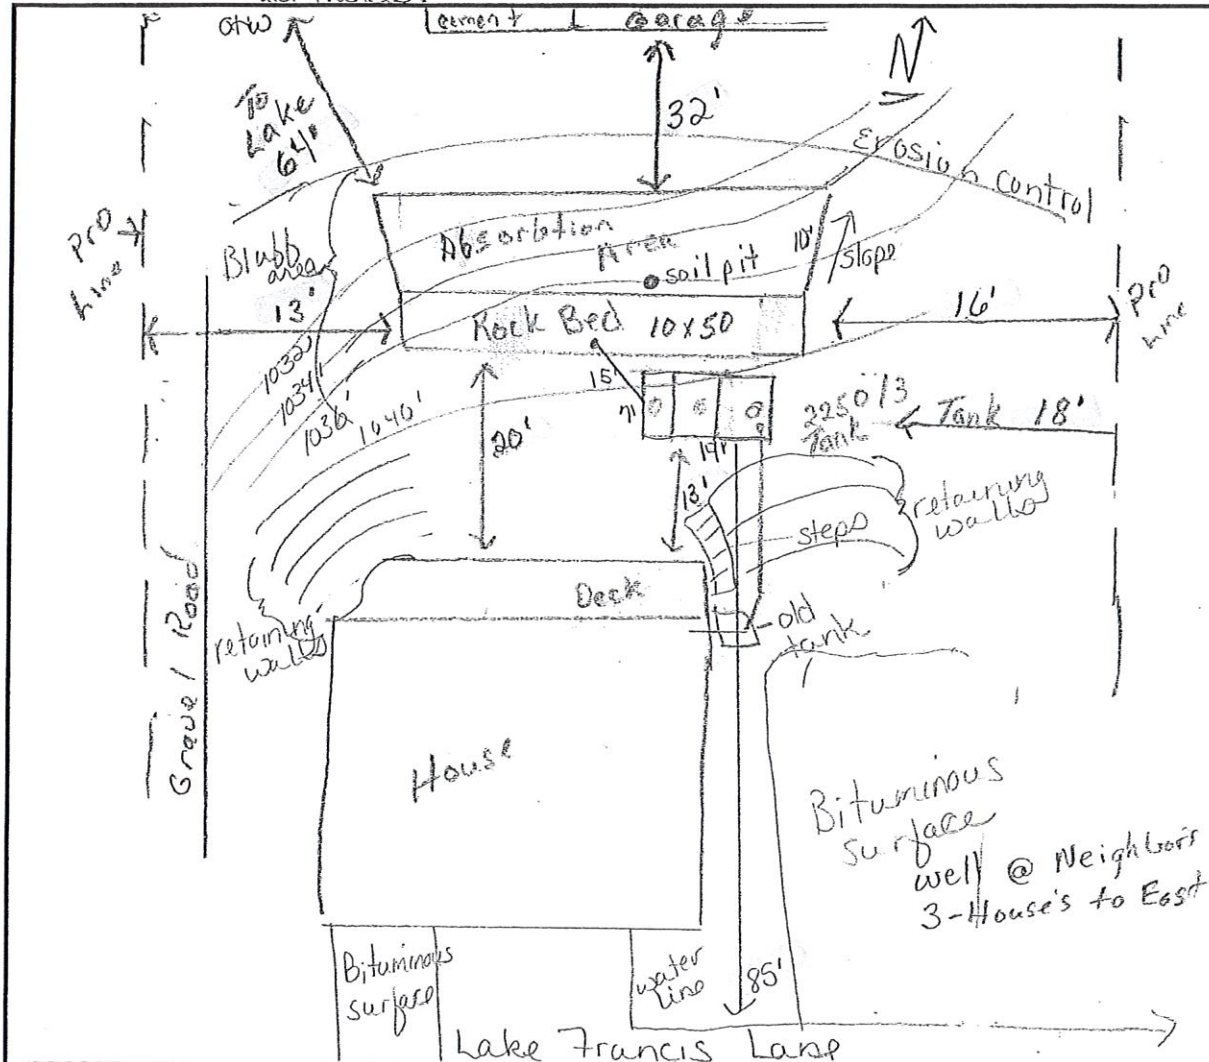 OHW
Cement Garage
N
To
Lake
64'
32'
Erosion Control
pro
line
Blubb
area
Absorbtion
Area
10'
slope
soil pit
13'
Rock Bed 10x50
16'
pro
line
1032'
1034'
1036'
1040'
15'
7'
20'
2250 / 3
Tank
Tank 18'
14'
13'
retaining
walls
steps
Deck
old
tank
retaining
walls
Gravel Road
House
Bituminous
surface
well @ Neighbors
3-House's to East
Bituminous
surface
water
line
85'
Lake Francis Lane